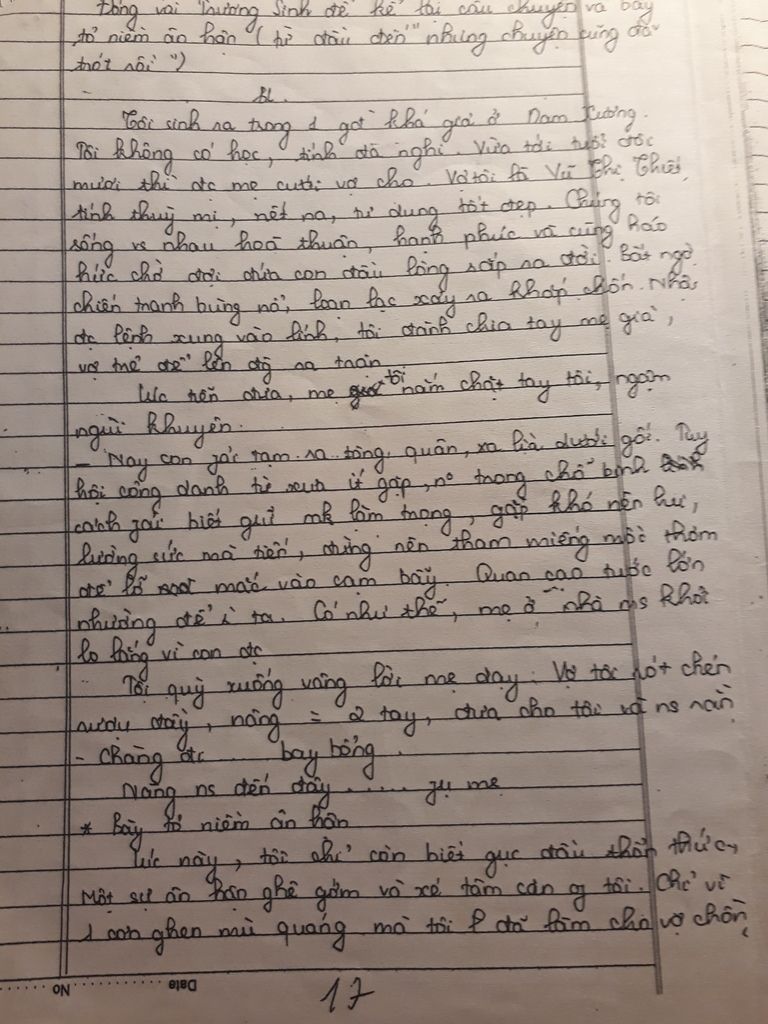 Đóng vai Trương Sinh để kể lại câu chuyện và bày
tỏ niềm ân hận (từ đầu đến "nhưng chuyện cũng đã
trót rồi")
BL.
Tôi sinh ra trong 1 gđ khá giả ở Nam Xương.
Tôi không có học, tính đa nghi. Vừa tới tuổi đôi
mươi thì đc mẹ cưới vợ cho. Vợ tôi là Vũ Thị Thiết,
tính thuỳ mị, nết na, tư dung tốt đẹp. Chúng tôi
sống vs nhau hoà thuận, hạnh phúc và cùng háo
hức chờ đợi đứa con đầu lòng sắp ra đời. Bất ngờ
chiến tranh bùng nổ, loạn lạc xảy ra khắp chốn. Nhận
đc lệnh xung vào lính, tôi đành chia tay mẹ già,
vợ trẻ để lên đg ra trận
Lúc tiễn đưa, mẹ tôi nắm chặt tay tôi, ngậm
ngùi khuyên.
- Nay con phải tạm ra tòng quân, xa lìa dưới gối. Tuy
hội công danh từ xưa ít gặp, no trong chỗ binh
cách phải biết giữ mk làm trọng, gặp khó nên lui,
lường sức mà tiến, đừng nên tham miếng mồi thơm
để lỡ mắc vào cạm bẫy. Quan cao tước lớn
nhường để ng ta. Có như thế, mẹ ở nhà ms khỏi
lo lắng vì con đc
Tôi quỳ xuống vâng lời mẹ dạy. Vợ tôi rót chén
rượu đầy, nâng = 2 tay, đưa cho tôi và ns rằng
- Chàng đi ..... bay bổng.
Nàng ns đến đây ...... mẹ
* Bày tỏ niềm ân hận
Lúc này, tôi chỉ còn biết gục đầu thổn thức,
Một sự ân hận ghê gớm vò xé tâm can of tôi. Chỉ vì
1 cơn ghen mù quáng mà tôi đã làm cho vợ chồng
No Date
17